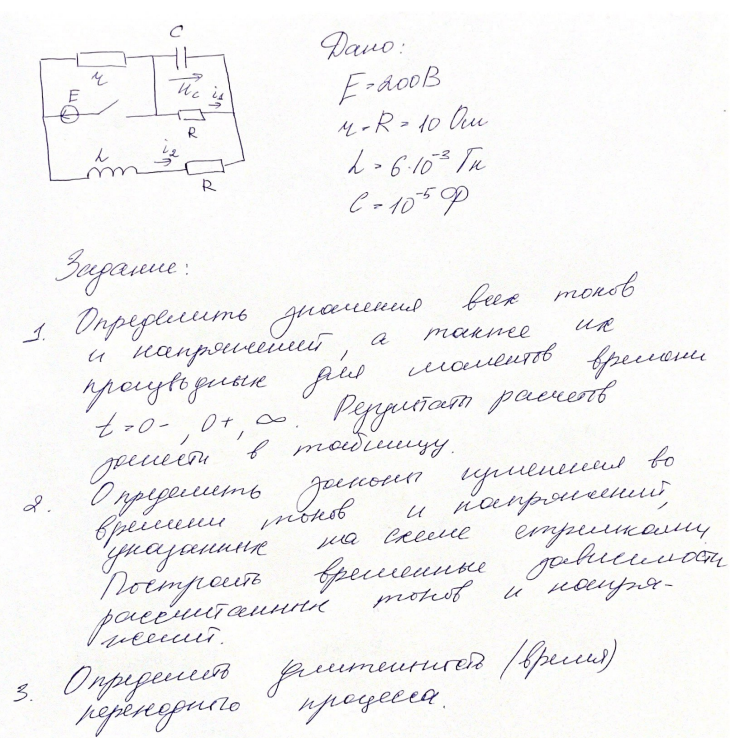 C
r
U_c
i_1
E
R
L
i_2
R
Дано:
E=200В
r=R=10 Ом
L=6·10⁻³ Гн
C=10⁻⁵ Ф
Задание:
1. Определить значения всех токов
и напряжений, а также их
производных для моментов времени
t=0-, 0+, ∞. Результаты расчетов
занести в таблицу.
2. Определить законы изменения во
времени токов и напряжений,
указанных на схеме стрелками,
Построить временные зависимости
рассчитанных токов и напря-
жений.
3. Определить длительность (время)
переходного процесса.